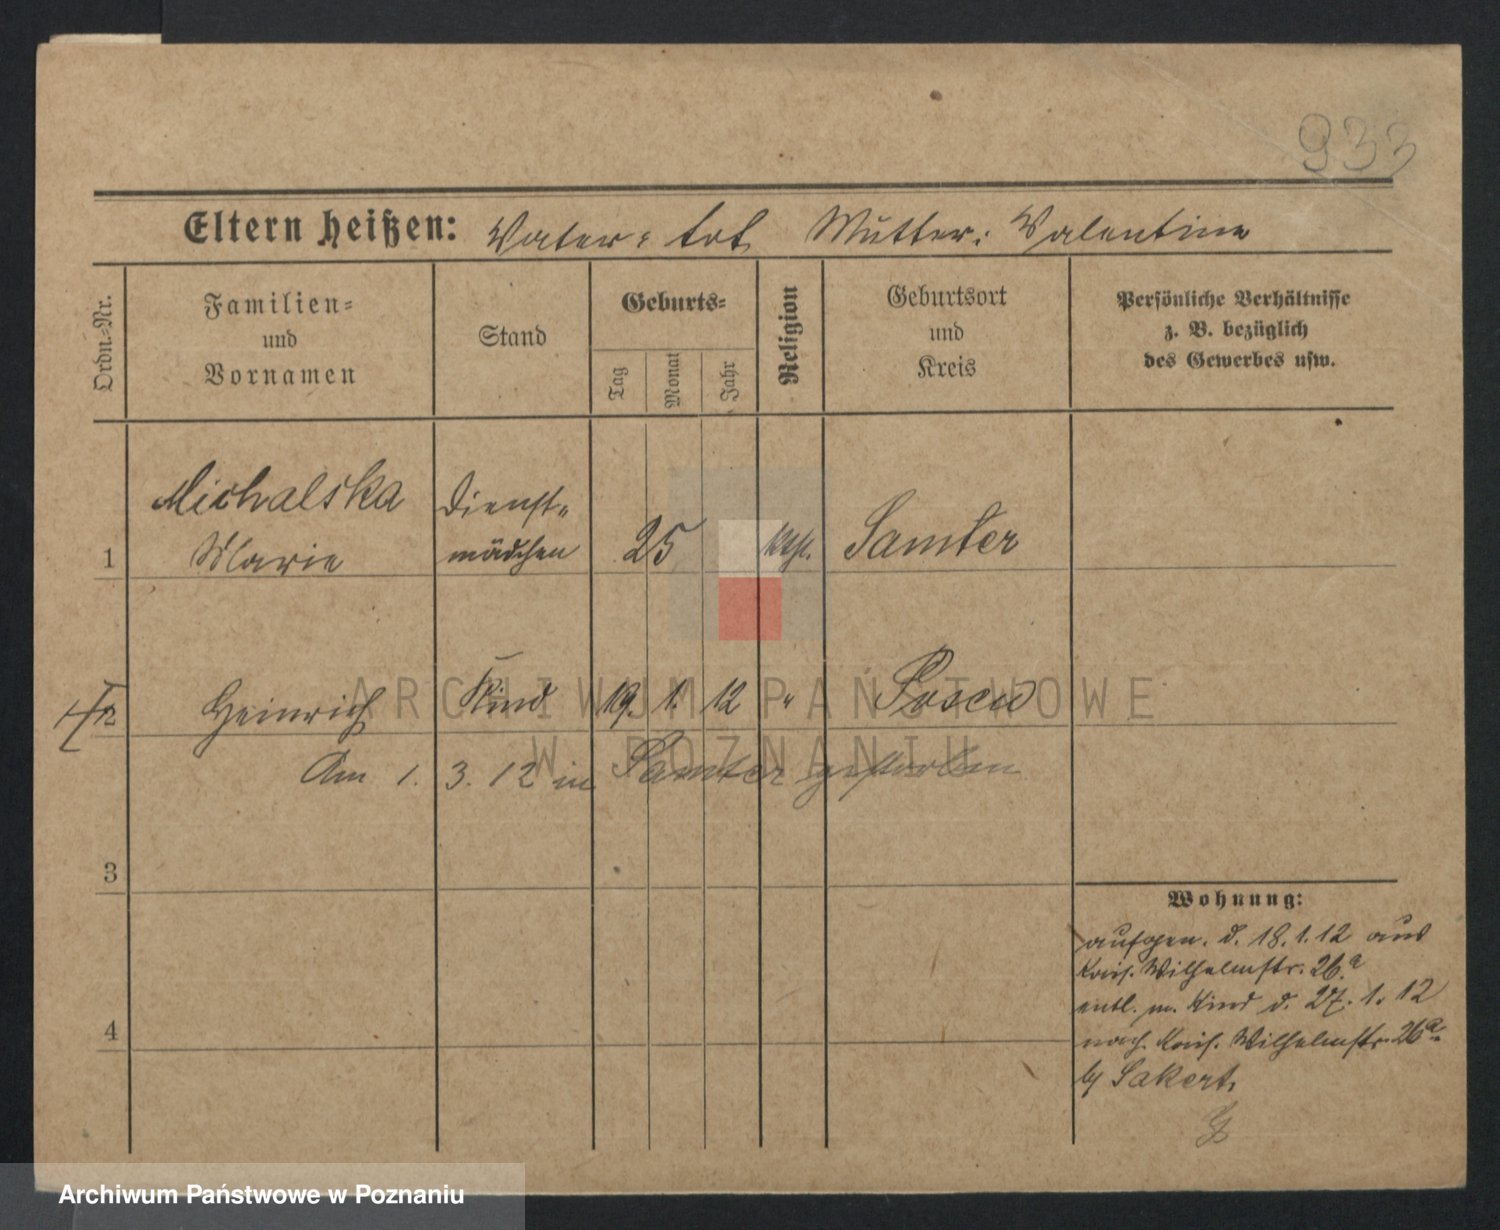 933
Eltern heißen: Vater: tot Mutter: Valentine
Ordn.=Nr.
Familien=
und
Vornamen
Stand
Geburts=
Tag
Monat
Jahr
Religion
Geburtsort
und
Kreis
Persönliche Verhältnisse
z. B. bezüglich
des Gewerbes usw.
Michalska Dienst=
1 Marie mädchen 25 kth. Samter
2 Heinrich Kind 19. 1. 12 " Posen
Am 1. 3. 12 in Samter gestorben
3
Wohnung:
aufgen. d. 18.1.12 aus
Kais. Wilhelmstr. 26.a
entl. m. Kind d. 27.1.12
4
nach Kais. Wilhelmstr. 26a
b/ Sakert.
ARCHIWUM PAŃSTWOWE
W POZNANIU
Archiwum Państwowe w Poznaniu